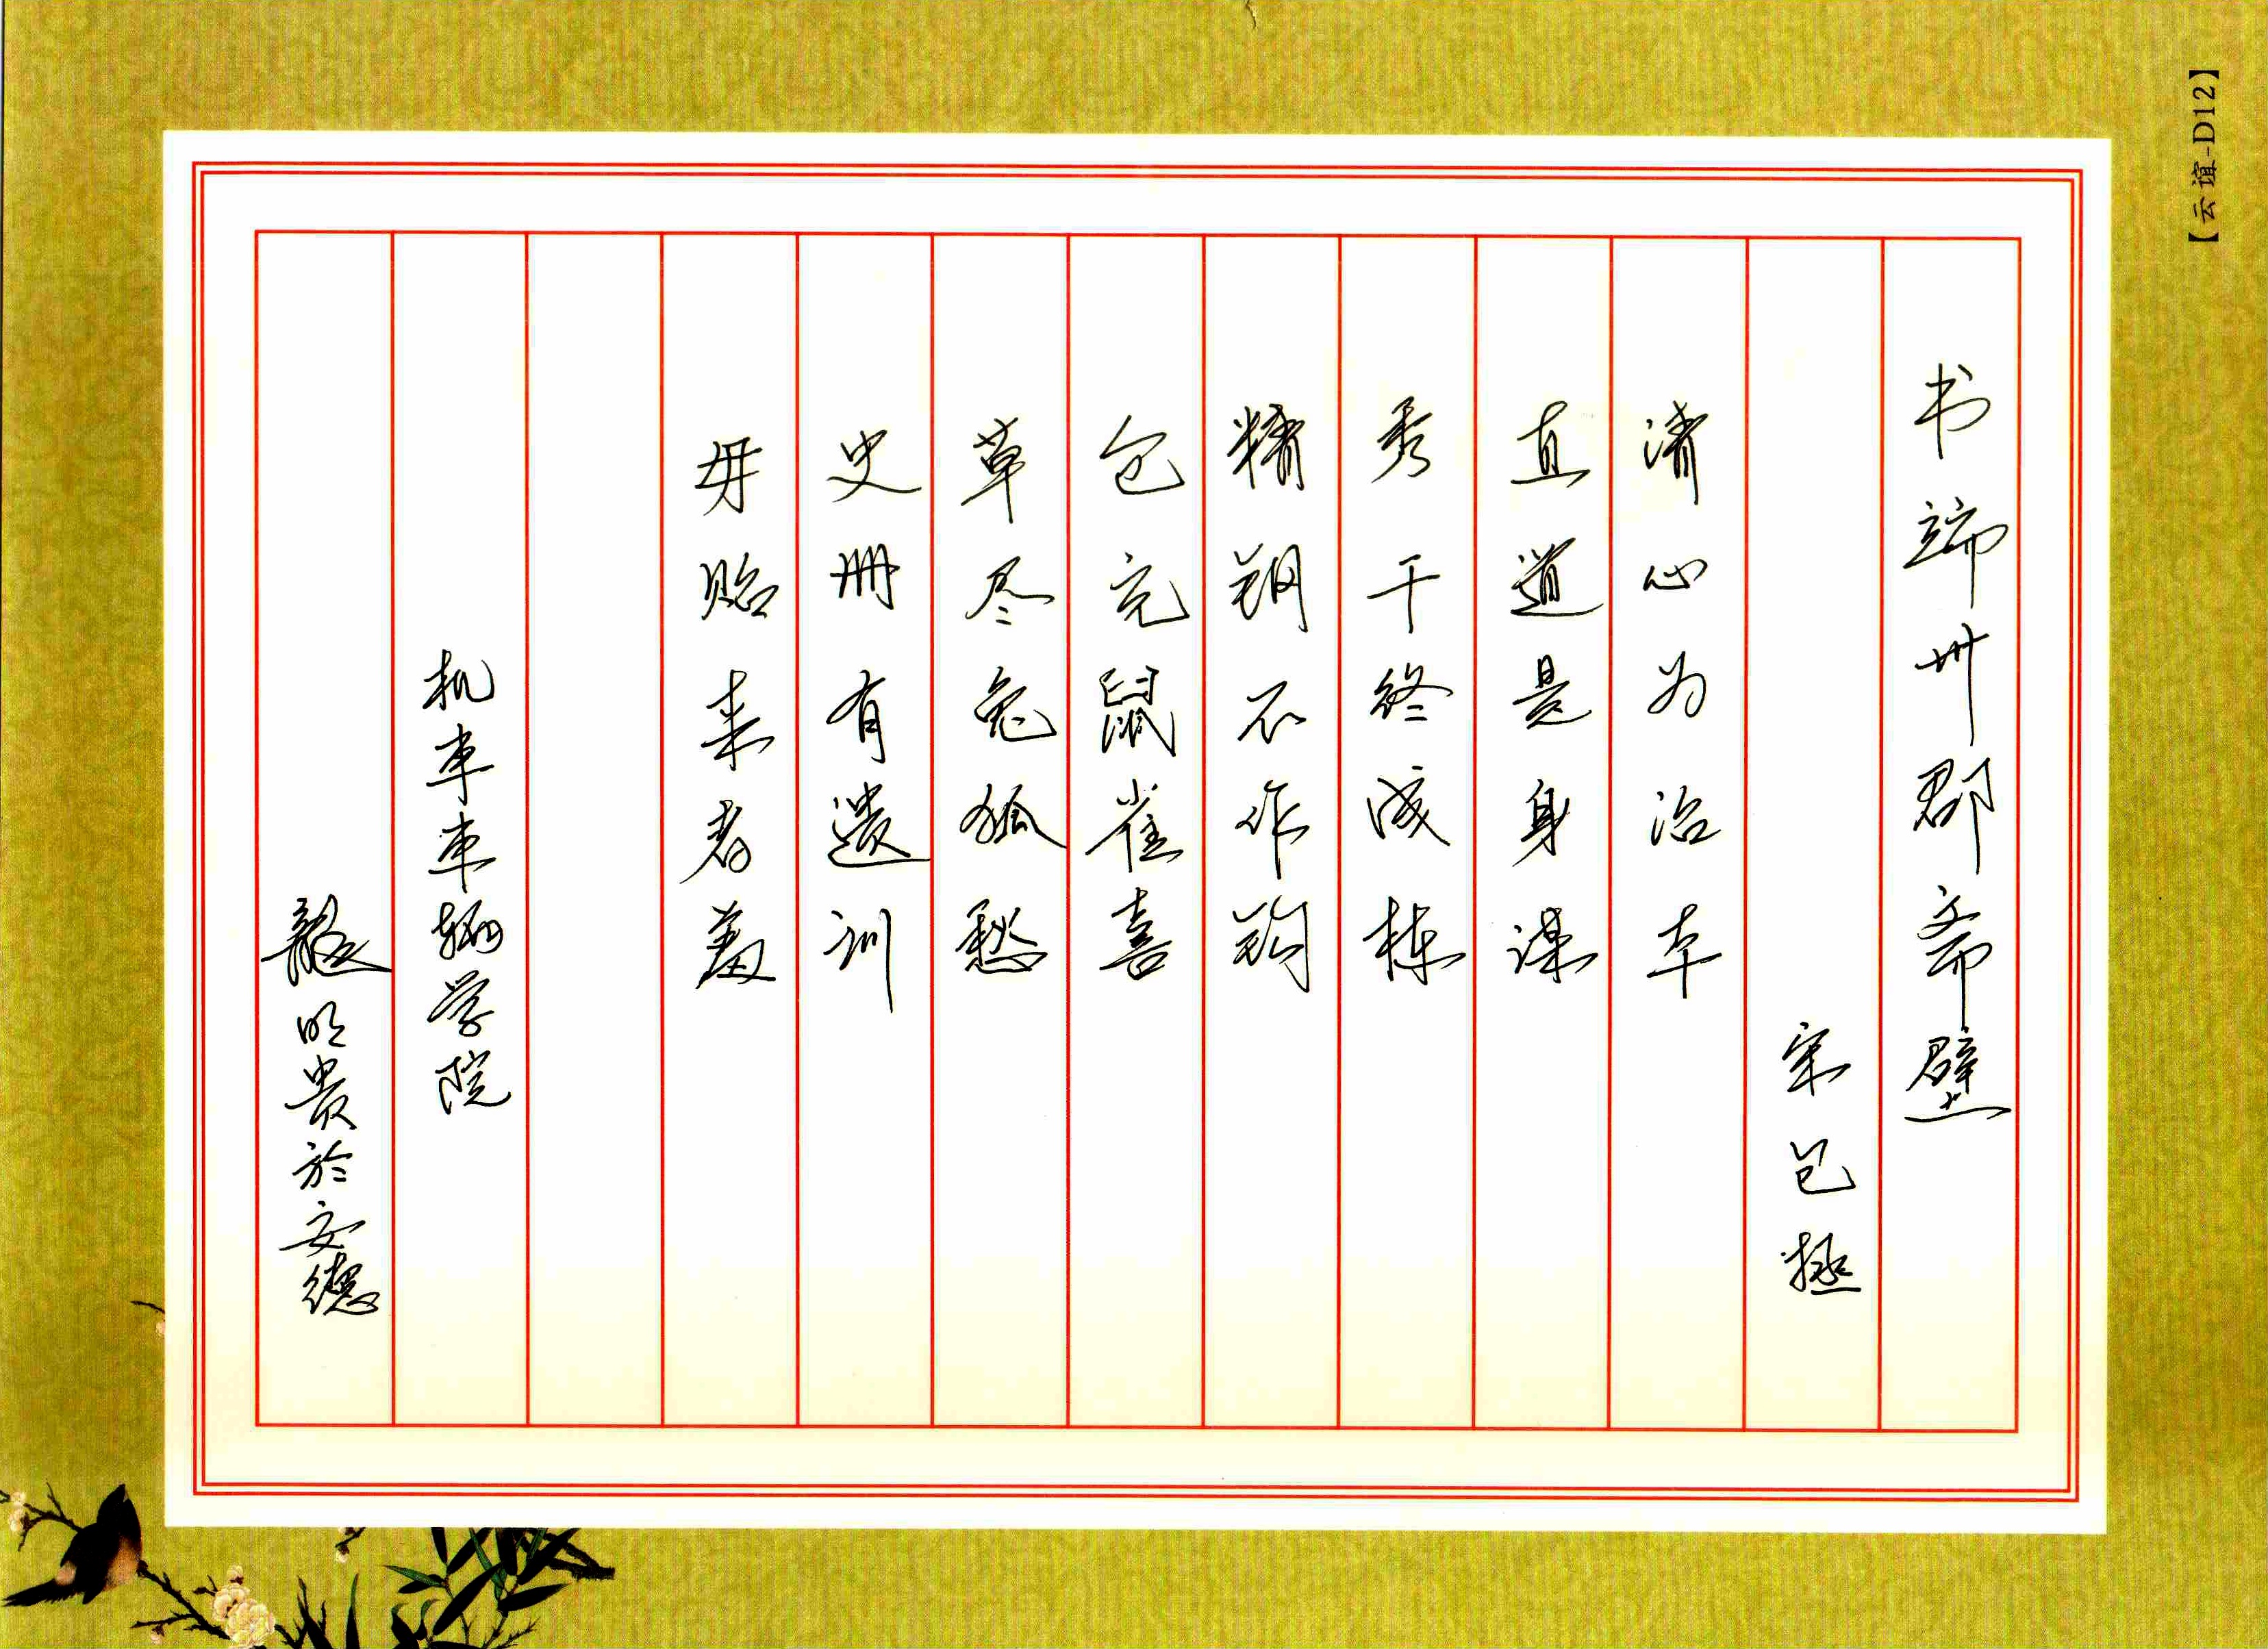 书端州郡斋壁
宋包拯
清心为治本
直道是身谋
秀干终成栋
精钢不作钩
仓充鼠雀喜
草尽兔狐愁
史册有遗训
毋贻来者羞
机车车辆学院
明贵於安德
【云谊-D12】